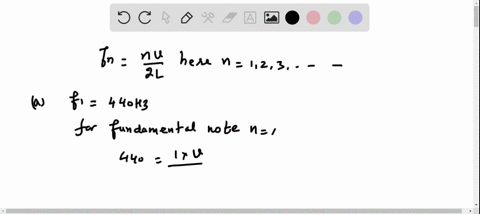 fn = nv/2L here n = 1,2,3,.. – –
(a) f1 = 440Hz
for fundamental note n=,
440 = 1×v